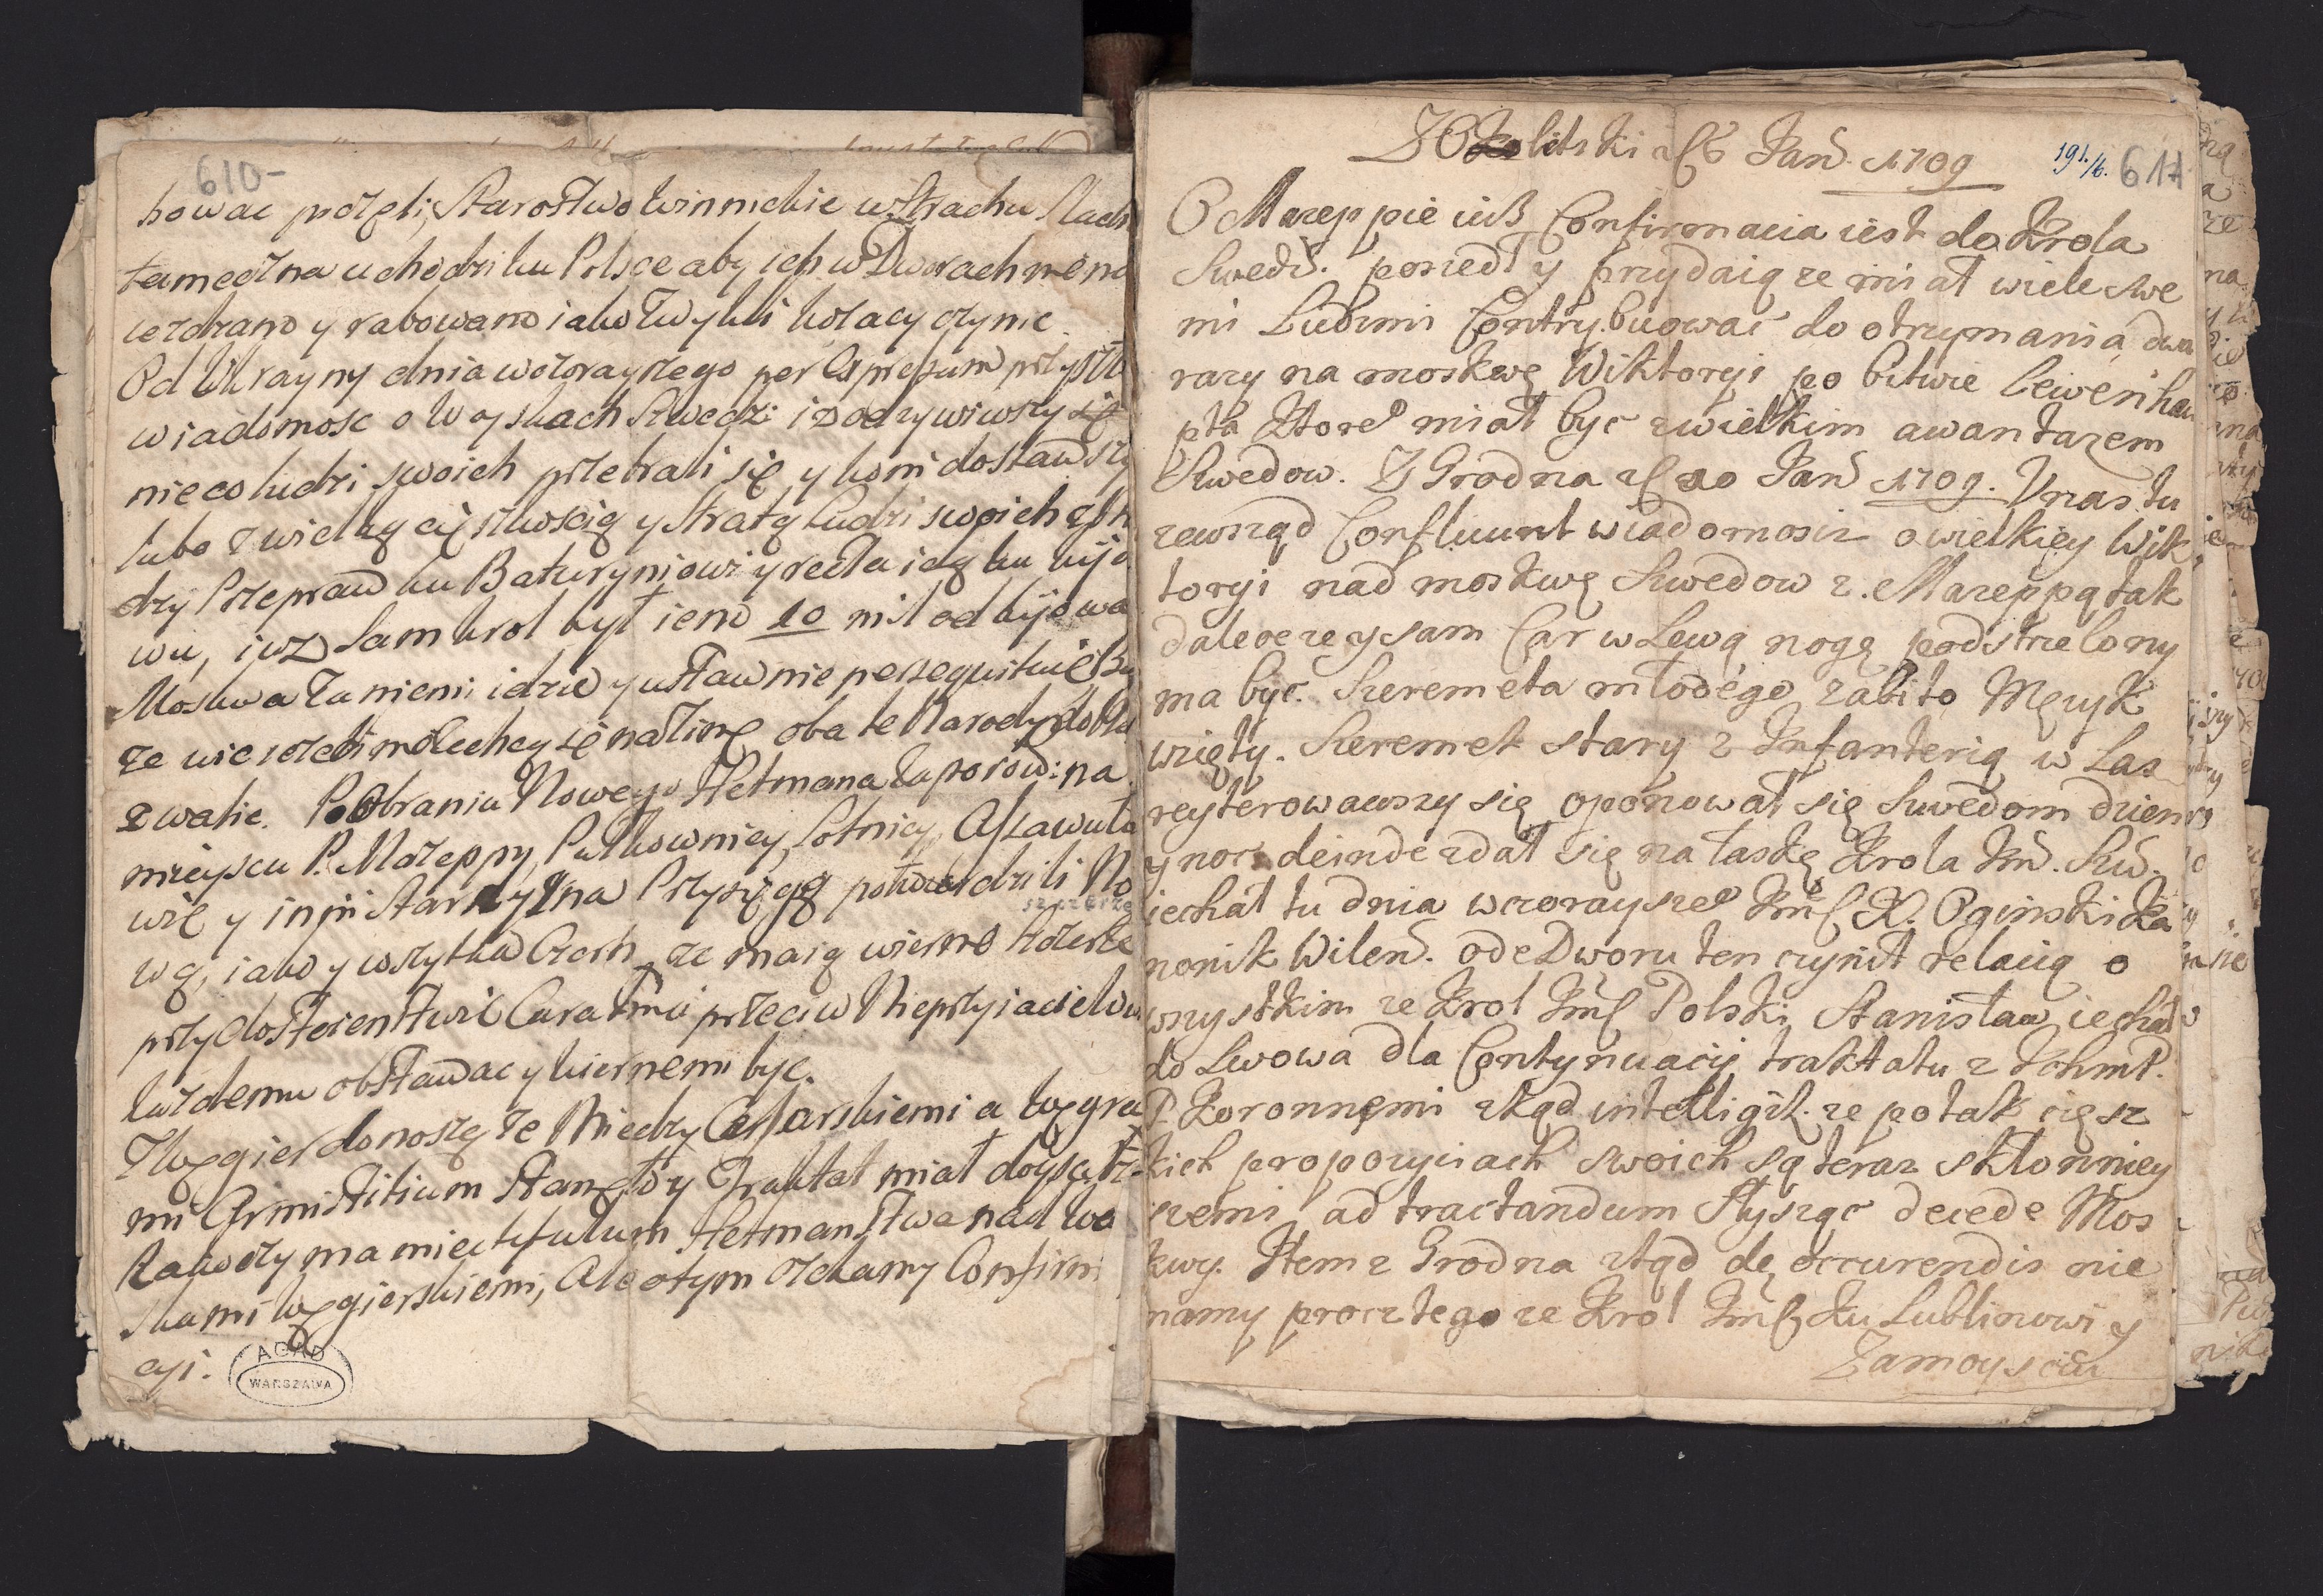 610-
howac poczęli, Starostwo Winnickie w Strachu Slach
tameczna uchodzi ku Polsce aby ich w Dworach
iezdzano y rabowano iako Zwykli kozacy czynic.
Od Ukrayny dnia wczorayszego per Expressum przyszła
wiadomosc o Woyskach Szwedz: iz odzywiwszy się
nieco ludzi swoich przebrali się y koni dostawszy
lubo z wielką cięszkoscią y Stratą Ludzi swoich
Przepraw ku Baturyniowi y recta idą ku kijo
wu, iuz Sam krol był ieno 10 mil od kijowa
Moskwa Za niemi idzie y ustawnie
ze wie
zwalic. Po Obraniu Nowego Hetmana Zaporow: na
mieyscu P. Mazeppy, Pułkownicy, Sotnicy, Assawuła
wie y inni Starszyzna Przysięgą potwierdzili No
szczerze
wą, iako y wszytka Czerń, ze maią wierno
przy dostoienstwie Cara Jmci przeciw Nieprzyiacielowi
kazdemu obstawac y wiernemi byc.
Z Węgier donoszą ze Miedzy Cesarskiemi a Węgra
mi Armistitium Stanęło y Traktat miał doysc,
Rakoczy ma miec titulum Hetmanstwa nad Wo
skami Węgierskiemi, Ale o tym czekamy Confirm
cyi.
AGAD
WARSZAWA
Z Okolitski 6 Jan. 1709
191./6. 611
O Mazeppie iuß Confirmacia iest do Krola
Swedz. poszedł y przydaią ze miał wiele swe
mi Ludzmi Contrybuowac do otrzymania dwa
razy na moskwę Wiktoryi po bitwie Lewenhau
pta Ktore miał byc z wielkim awantazem
Szwedow. Z Grodna 20 Jan 1709. U nas tu
zewsząd Confluunt wiadomosci o wielkiey Wik
toryi nad moskwę Szwedow z Mazeppą tak
dalece ze y sam Car w Lewą nogę podstrzelony
ma byc. Szeremeta młodego zabito Męzyk
wzięty. Szeremet stary z Infanterią w Las
reyterowawszy się oponował się Szwedom dzien
y noc deinde zdał się na łaskę Krola Jm. Szw.
iechał tu dnia wczorayszeo Jmć X. Oginski Ka
nonik Wilen. ode Dworu ten czynił relacią o
wszystkim ze Krol Jmć Polski Stanisław iechał
do Lwowa dla Contynuacij traktatu z
P. Koronnemi zkąd ze po tak cięsz
kich propozyciach swoich są teraz skłonniey
szemi ad tractandum słysząc de Mos
kwy. Item z Grodna ztąd de occurendis nie
mamy procz tego ze Krol Jmć Ku Lublinowi y
Zamoysciu